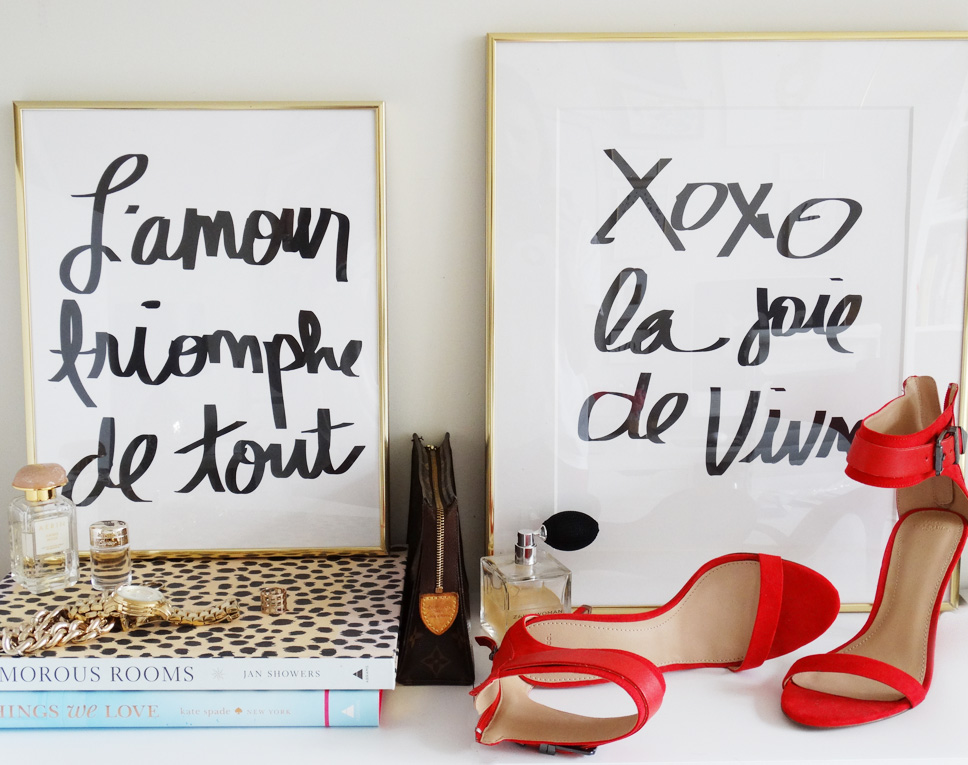 L'amour
triomphe
de tout
Xoxo
la joie
de Viv
MOROUS ROOMS JAN SHOWERS
HINGS we LOVE kate spade NEW YORK